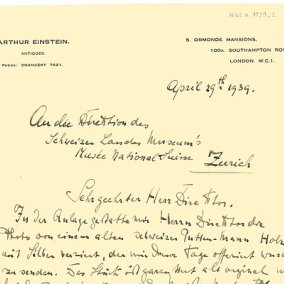 N 62 a 1939_2
ARTHUR EINSTEIN.
ANTIQUES.
PHONE: CHANCERY 7621.
5, ORMONDE MANSIONS,
100A, SOUTHAMPTON RO
LONDON. W.C.1.
April 29th 1939.
An die Direktion des
Schweizer Landes Museum's
Musée National Suisse
Zurich
Sehrgeehrter Herr Direktor.
In der Anlage gestatte mir Herrn Direktor die
Photo von einem alten schweizer Gutten Mann Holz
mit Silber verziert, der mir dieser Tage offeriert wurde
zu senden. Das Stück ist garantiert als original u